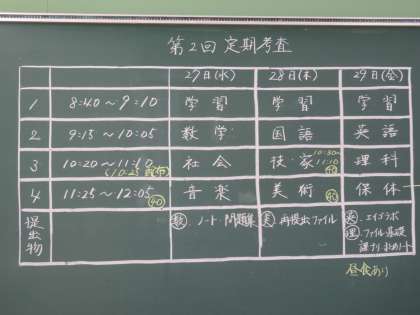 第2回 定期考査
27日(水) 28日(木) 29日(金)
1 8:40～9:10 学習 学習 学習
2 9:15～10:05 数学 国語 英語
3 10:20～11:10 社会 技・家 10:30～11:10 40 理科
(10:25 配布)
4 11:25～12:05 40 音楽 美術 40 保体
提出物 数.ノート・問題集 美.再提出ファイル 英.エイゴラボ
理.ファイル・基礎
昼食あり